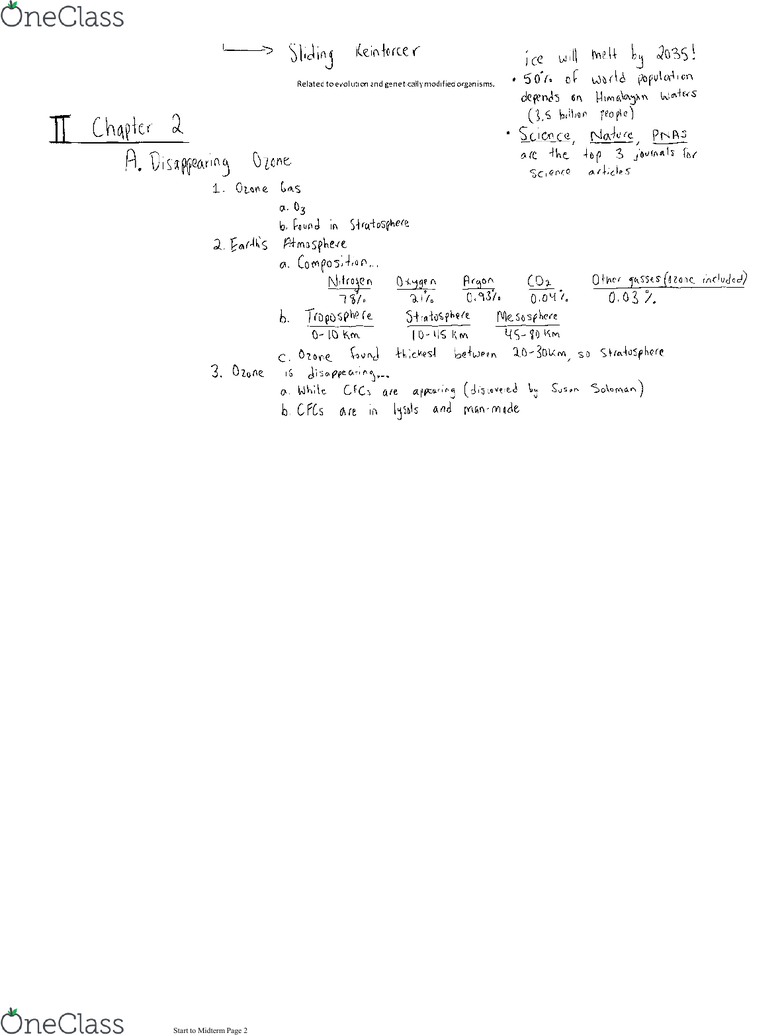 OneClass
Sliding Reinforcer
Related to evolution and genetically modified organisms.
ice will melt by 2035!
• 50% of world population
depends on Himalayan Waters
(3.5 billion people)
• Science, Nature, PNAS
are the top 3 journals for
science articles
II Chapter 2
A. Disappearing Ozone
1. Ozone Gas
a. O3
b. Found in Stratosphere
2. Earth's Atmosphere
a. Composition...
Nitrogen Oxygen Argon CO2 Other gasses (ozone included)
78% 21% 0.93% 0.04% 0.03%
b. Troposphere Stratosphere Mesosphere
0-10 Km 10-45 Km 45-80 Km
c. Ozone found thickest between 20-30Km, so Stratosphere
3. Ozone is disappearing...
a. While CFCs are appearing (discovered by Susan Soloman)
b. CFCs are in lysols and man-made
OneClass
Start to Midterm Page 2